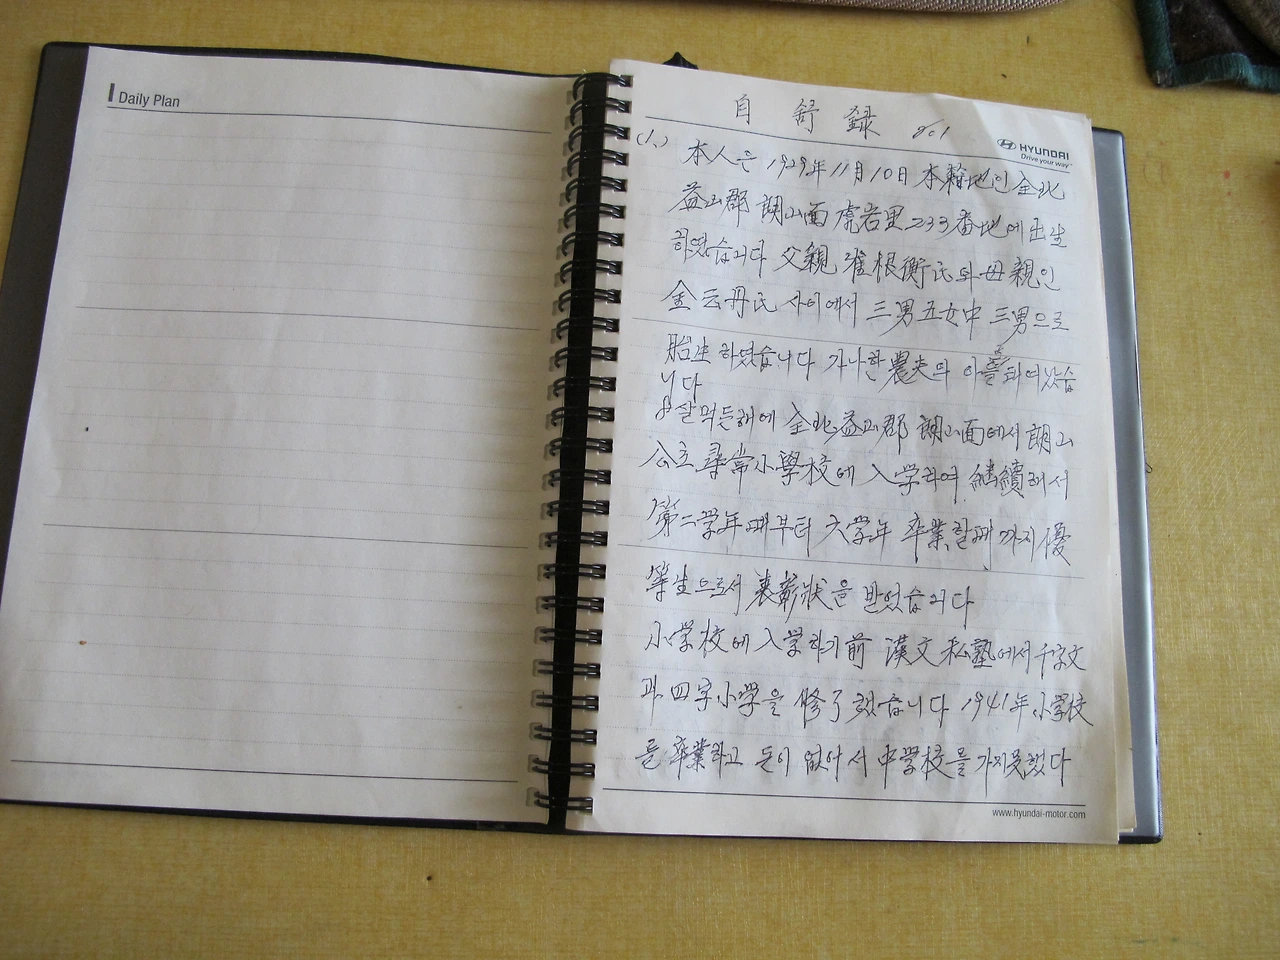 Daily Plan
自 舒 録 No 1
HYUNDAI
Drive your way
(1.) 本人은 1929年 11月 10日 本籍地인 全北
益山郡 朗山面 虎岩里 233番地에 出生
하였습니다 父親 崔根衡氏와 母親인
金云丹氏 사이에서 三男五女中 三男으로
胎生하였습니다 가난한 農夫의 아들로 태어났습
니다
8살 먹든 해에 全北 益山郡 朗山面에서 朗山
公立尋常小學校에 入学하여 継續해서
第二学年때부터 六学年 卒業할때까지 優
等生으로서 表彰狀을 받었습니다
小学校에 入学하기前 漢文私塾에서 千字文
과 四字小学을 修了했습니다 1941年 小学校
를 卒業하고 돈이 없어서 中学校를 가지못했다
www.hyundai-motor.com